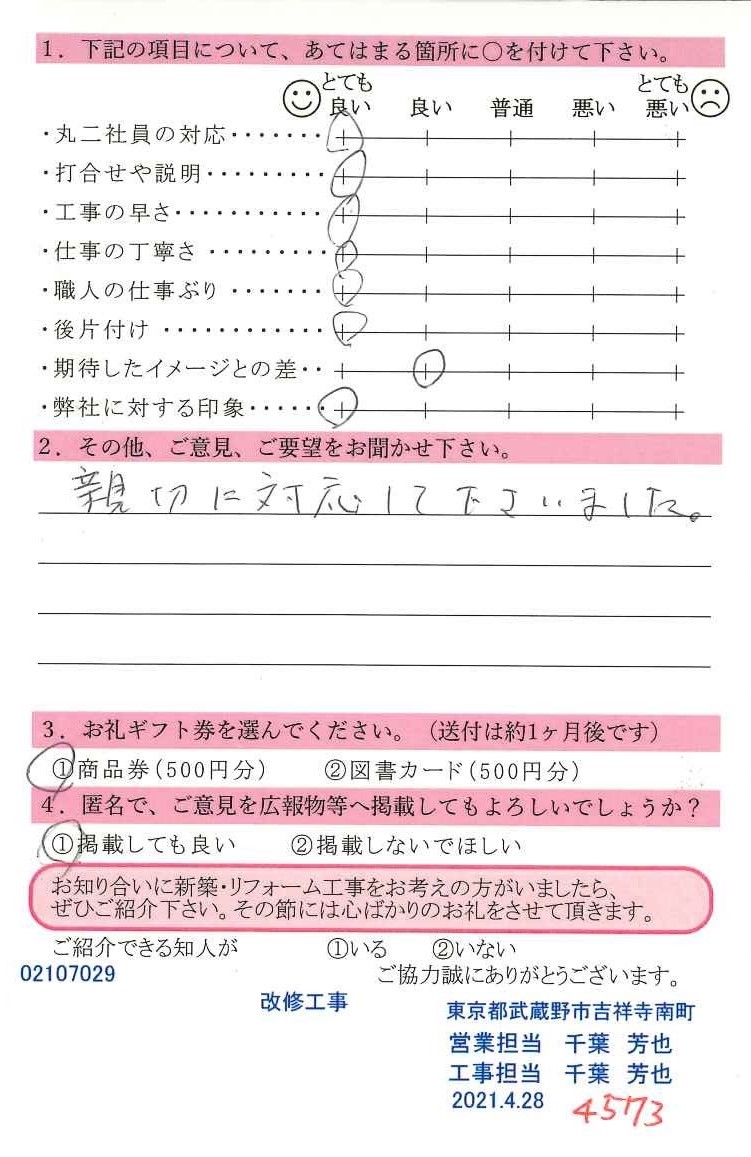 1．下記の項目について、あてはまる箇所に○を付けて下さい。
とても良い　良い　普通　悪い　とても悪い
・丸二社員の対応・・・・・・・
・打合せや説明・・・・・・・・・
・工事の早さ・・・・・・・・・・・
・仕事の丁寧さ・・・・・・・・・
・職人の仕事ぶり・・・・・・・
・後片付け・・・・・・・・・・・・
・期待したイメージとの差・・
・弊社に対する印象・・・・・・
2．その他、ご意見、ご要望をお聞かせ下さい。
親切に対応して下さいました。
3．お礼ギフト券を選んでください。（送付は約1ヶ月後です）
①商品券（500円分）　②図書カード（500円分）
4．匿名で、ご意見を広報物等へ掲載してもよろしいでしょうか？
①掲載しても良い　②掲載しないでほしい
お知り合いに新築・リフォーム工事をお考えの方がいましたら、
ぜひご紹介下さい。その節には心ばかりのお礼をさせて頂きます。
ご紹介できる知人が　①いる　②いない
02107029　ご協力誠にありがとうございます。
改修工事　東京都武蔵野市吉祥寺南町
営業担当　千葉　芳也
工事担当　千葉　芳也
2021.4.28　4573